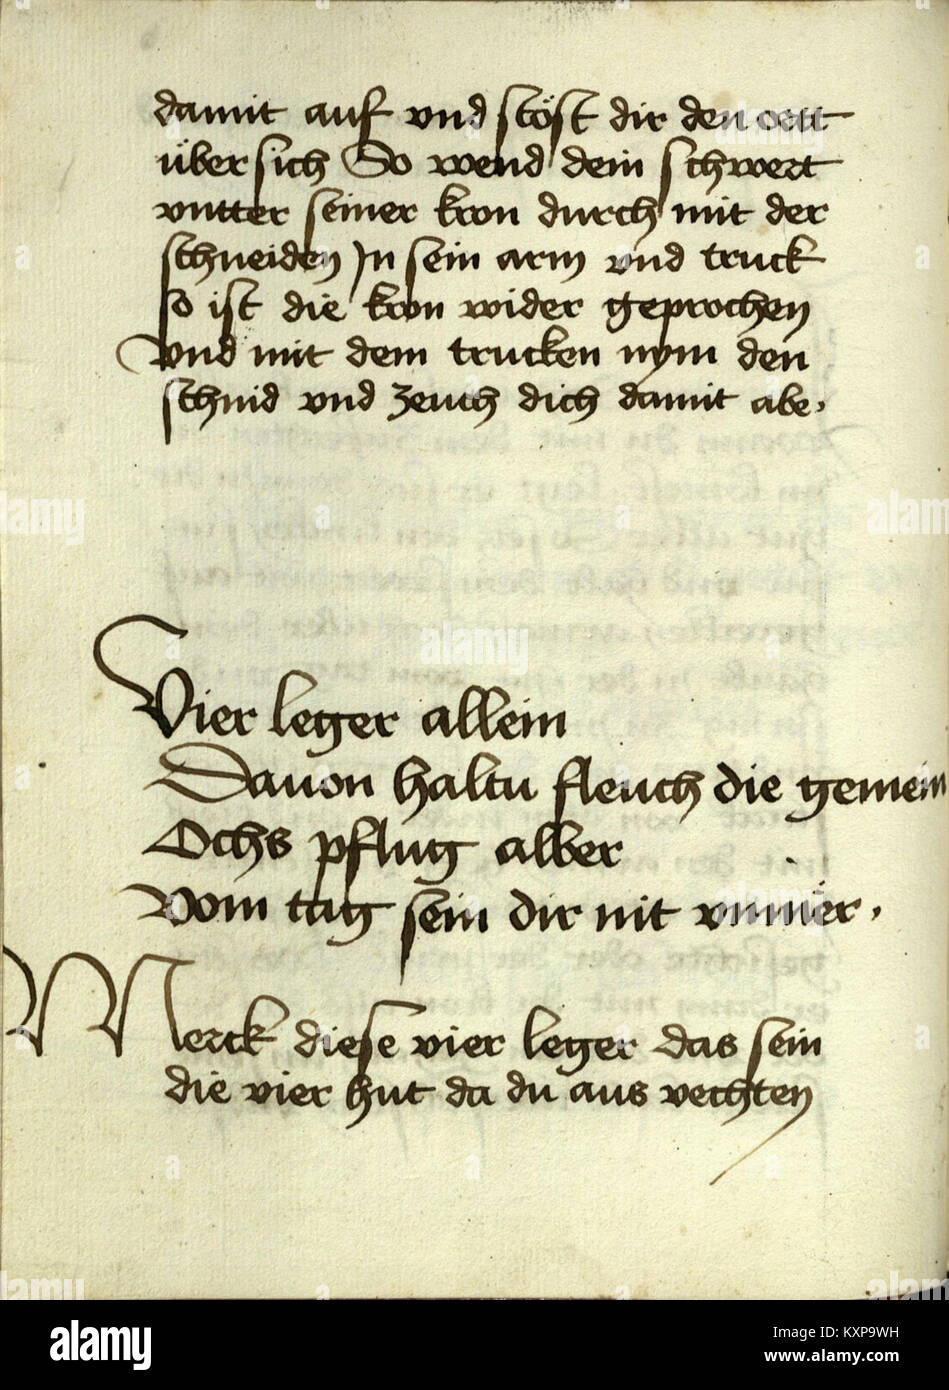 damit auf vnd stöst dir den ortt
über sich So wend dein schwert
vntter seiner kron durch mit der
schneiden Jn sein arm vnd truck
so ist die kron wider geprochen
Vnd mit dem trucken nym den
schnid vnd zeuch dich damit abe.
Vier leger allein
Dauon haltu fleuch die gemein
Ochs pflug alber
Vom tag sein dir nit vnmer.
Merck diese vier leger das sein
die vier hut da du aus vechten
alamy
Image ID: KXP9WH
www.alamy.com